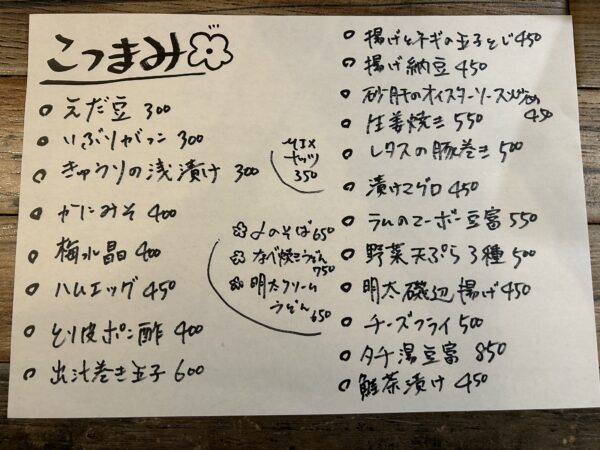 こつまみ
えだ豆 300
いぶりがっこ 300
きゅうりの浅漬け 300
かにみそ 400
梅水晶 400
ハムエッグ 450
とり皮ポン酢 400
出汁巻き玉子 600
MIX
ナッツ
350
〆のそば 650
なべ焼きうどん
750
明太クリーム
うどん 650
揚げとネギの玉子とじ 450
揚げ納豆 450
砂肝のオイスターソース炒め
450
生姜焼き 550
レタスの豚巻き 500
漬けマグロ 450
ラムのマーボー豆富 550
野菜天ぷら3種 500
明太磯辺揚げ 450
チーズフライ 500
タチ湯豆富 850
鮭茶漬け 450